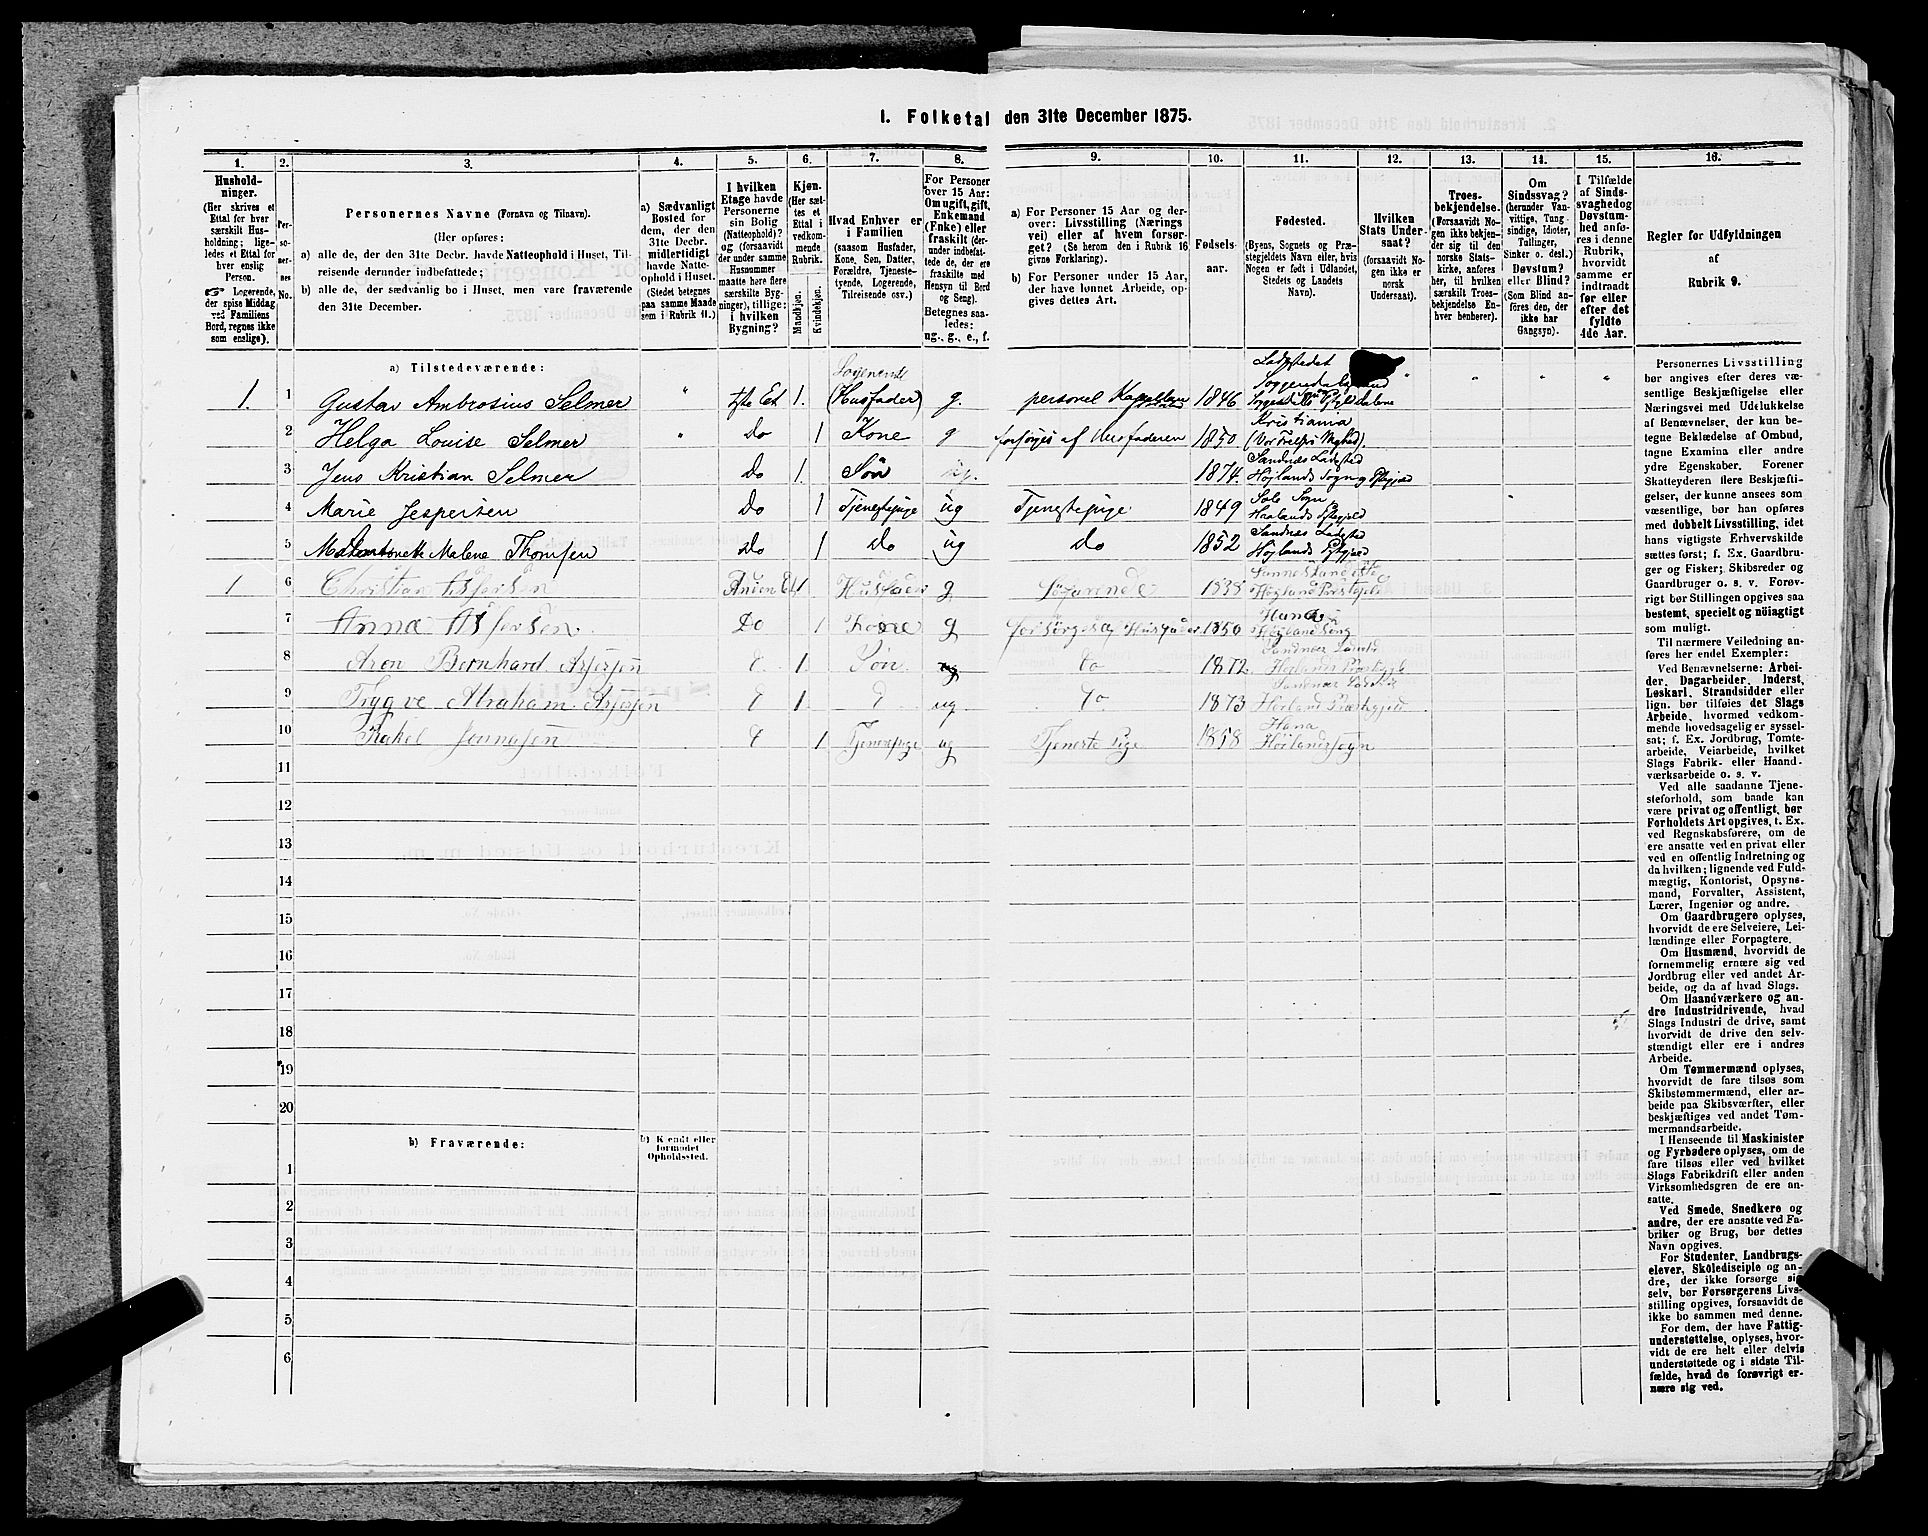 1. Folketal den 31te December 1875.
1. 2. 3. 4. 5. 6. 7. 8. 9. 10. 11. 12. 13. 14. 15. 16.
Hushold-
ninger.
(Her skrives et
Ettal for hver
særskilt Hus-
holdning; lige-
ledes et Ettal
for hver
enslig
Person.
☞ Logerende,
der spise Middag
ved Familiens
Bord, regnes ikke
som enslige).
Per-
so-
ner-
nes
No.
Personernes Navne (Fornavn og Tilnavn).
(Her opføres:
a) alle de, der den 31te Decbr. havde Natteophold i Huset, Til-
reisende derunder indbefattede;
b) alle de, der sædvanlig bo i Huset, men vare fraværende
den 31te December.
a) Sædvanligt
Bosted for
dem, der den
31te Decbr.
midlertidigt
havde Natte-
ophold i Huset.
(Stedet betegnes
paa samme Maade
som i Rubrik 11.)
I hvilken
Etage havde
Personerne
sin Bolig
(Natteophold)?
og (forsaavidt
der under samme
Husnummer
maatte høre flere
særskilte Byg-
ninger), tillige:
i hvilken
Bygning?
Kjøn.
(Her sæt-
tes et
Ettal i
vedkom-
mende
Rubrik.
Mandkjøn.
Kvindekjøn.
Hvad Enhver er
i Familien
(saasom Husfader,
Kone, Søn, Datter,
Forældre, Tjeneste-
tyende, Logerende,
Tilreisende osv.)
For Personer
over 15 Aar:
Om ugift, gift,
Enkemand
(Enke) eller
fraskilt (der-
under indbefat-
tede de, der ere
fraskilte med
Hensyn til Bord
og Seng).
Betegnes saa-
ledes:
ug., g., e., f.
a) For Personer 15 Aar og der-
over: Livsstilling (Nærings
vei) eller af hvem forsør-
get? (Se herom den i Rubrik 16
givne Forklaring).
b) For Personer under 15 Aar,
der have lønnet Arbeide, op-
gives dettes Art.
Fødsels-
aar.
Fødested.
(Byens, Sognets og Præ-
stegjeldets Navn eller, hvis
Nogen er født i Udlandet,
Stedets og Landets
Navn).
Hvilken
Stats Under-
saat?
(forsaavidt No-
gen ikke er
norsk
Undersaat).
Troes-
bekjendelse.
(Forsaavidt No-
gen ikke bekjen-
der sig til den
norske Stats-
kirke, anføres
her, til hvilken
særskilt Troes-
bekjendelse En-
hver henhører).
Om
Sindssvag?
(herunder Van-
vittige, Tung-
sindige, Idioter,
Tullinger,
Sinker o. desl.)
Døvstum?
eller Blind?
(Som Blind an-
føres den, der
ikke har
Gangsyn).
I Tilfælde
af Sinds-
svaghed og
Døvstum-
hed anfø-
res i denne
Rubrik,
hvorvidt
samme er
indtraadt
før eller
efter det
fyldte
4de Aar.
Regler for Udfyldningen
af
Rubrik 9.
a) Tilstedeværende:
1. 1 Gustav Ambrosius Selmer " 1. (Husfader) g. personel Kapellan 1846
2 Helga Louise Selmer " Do 1 Kone g forsørges af Husfaderen 1850 Kristiania
3 Jens Kristian Selmer Do 1. Søn 1874. Sandnæs Ladested Højlands Sogn og Pstgjæld
4 Marie Jespersen Do 1 Tjenestepige ug Tjenestepige 1849 Sole Sogn Haalands Pstgjeld
5 Malene Thomsen Do 1 Do ug Do 1852 Sandnæs Ladested Højlands Pstgjæld
1 6 Christian Anden Et 1 Husfader g Søfarende Høgland Præstegjeld
7 Anna Do 1 Kone g forsørges af Husfader 1850 Hana Høiland Sogn
8 Aron Bernhard 1 Søn ug do 1872
9 Trygve Abraham 1 ug do 1873 Høiland Præstegjeld
10 Rakel Jonnasen 1 Tjenestepige ug Tjeneste Pige 1858 Hana Høilands sogn
11
12
13
14
15
16
17
18
19
20
b) Fraværende:
b) Kjendt eller
formodet
Opholdssted.
1
2
3
4
5
6
Personernes Livsstilling
bør angives efter deres væ-
sentlige Beskjæftigelse eller
Næringsvei med Udelukkelse
af Benævnelser, der kun be-
tegne Beklædelse af Ombud,
tagne Examina eller andre
ydre Egenskaber. Forener
Skatteyderen flere Beskjæfti-
gelser, der kunne ansees som
væsentlige, bør han opføres
med dobbelt Livsstilling, idet
hans vigtigste Erhvervskilde
sættes først; f. Ex. Gaardbru-
ger og Fisker; Skibsreder og
Gaardbruger o. s. v. Forøv-
rigt bør Stillingen opgives saa
bestemt, specielt og nøiagtigt
som muligt.
Til nærmere Veiledning an-
føres her endel Exempler:
Ved Benævnelserne: Arbei-
der, Dagarbeider, Inderst,
Løskarl, Strandsidder eller
lign. bør tilføies det Slags
Arbeide, hvormed vedkom-
mende hovedsagelig er syssel-
sat; f. Ex. Jordbrug, Tomte-
arbeide, Veiarbeide, hvilket
Slags Fabrik- eller Haand-
værksarbeide o. s. v.
Ved alle saadanne Tjene-
steforhold, som baade kan
være privat og offentligt, bør
Forholdets Art opgives, t. Ex.
ved Regnskabsførere, om de
ere ansatte ved en privat eller
ved en offentlig Indretning og
da hvilken; lignende ved Fuld-
mægtig, Kontorist, Opsyns-
mand, Forvalter, Assistent,
Lærer, Ingeniør og andre.
Om Gaardbrugere oplyses,
hvorvidt de ere Selveiere, Lei-
lændinge eller Forpagtere.
Om Husmænd, hvorvidt de
fornemmelig ernære sig ved
Jordbrug eller ved andet Ar-
beide, og da af hvad Slags.
Om Haandværkere og an-
dre Industridrivende, hvad
Slags Industri de drive, samt
hvorvidt de drive den selv-
stændigt eller ere i andres
Arbeide.
Om Tømmermænd oplyses,
hvorvidt de fare tilsøs som
Skibstømmermænd, eller ar-
beide paa Skibsværfter, eller
beskjæftiges ved andet Tøm-
mermandsarbeide.
I Henseende til Maskinister
og Fyrbødere oplyses, om de
fare tilsøs eller ved hvilket
Slags Fabrikdrift eller anden
Virksomhedsgren de ere an-
satte.
Ved Smede, Snedkere og
andre, der ere ansatte ved Fa-
briker og Brug, bør dettes
Navn opgives.
For Studenter, Landbrugs-
elever, Skoledisciple og an-
dre, der ikke forsørge sig
selv, bør Forsørgerens Livs-
stilling opgives, forsaavidt de
ikke bo sammen med denne.
For dem, der have Fattig-
understøttelse, oplyses, hvor-
vidt de ere helt eller delvis
understøttede og i sidste Til-
fælde, hvad de forøvrigt er-
nære sig ved.